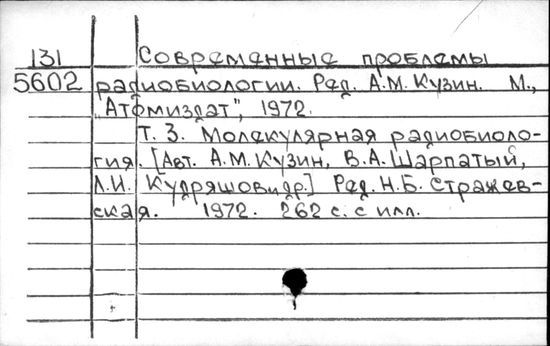 131 Современные проблемы
5602 радиобиологии. Ред. А.М. Кузин. М.,
„Атомиздат", 1972.
Т. 3. Молекулярная радиобиоло-
гия. [Авт. А.М. Кузин, В.А. Шарпатый,
Л.И. Кудряшов и др.] Ред. Н.Б. Стражев-
ская. 1972. 262 с. с илл.